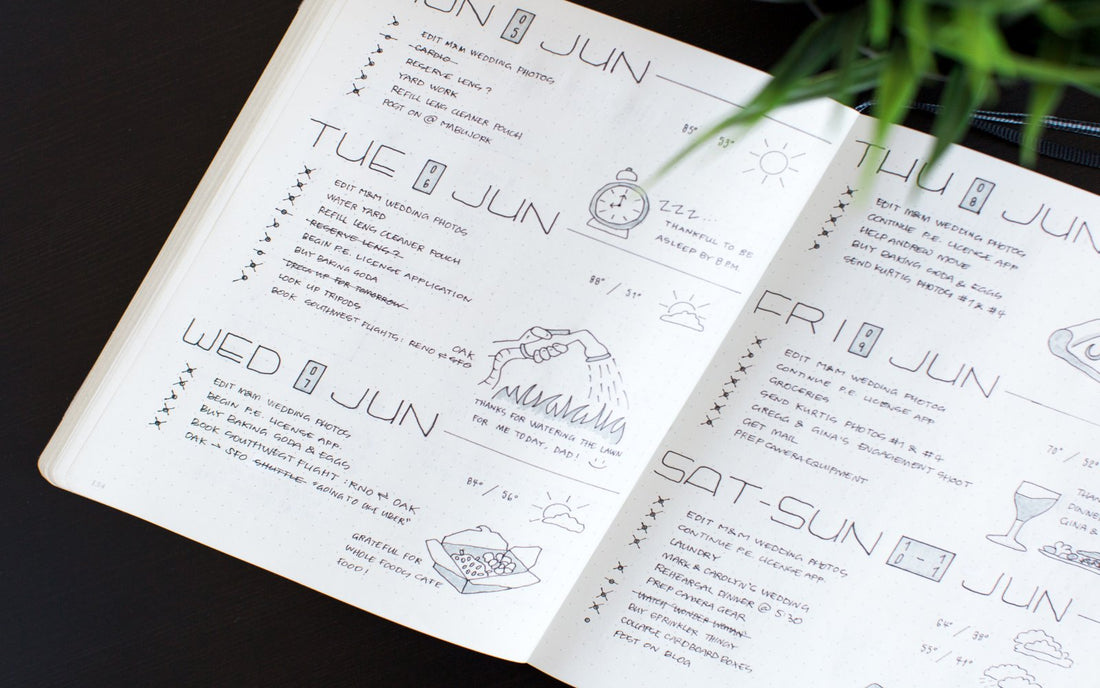 05 JUN
EDIT M&M WEDDING PHOTOS
CARDIO
RESERVE LENS?
YARD WORK
REFILL LENS CLEANER POUCH
POST ON @ MABUJORK
85° 53°
TUE 06 JUN
EDIT M&M WEDDING PHOTOS
WATER YARD
REFILL LENS CLEANER POUCH
RESERVE LENS?
BEGIN P.E. LICENSE APPLICATION
BUY BAKING SODA
DRESS UP FOR TOMORROW
LOOK UP TRIPODS
BOOK SOUTHWEST FLIGHTS: RENO ⇄ SFO
OAK
ZZZ...
THANKFUL TO BE
ASLEEP BY 8 PM.
88° / 51°
THANKS FOR WATERING THE LAWN
FOR ME TODAY, DAD!
WED 07 JUN
EDIT M&M WEDDING PHOTOS
BEGIN P.E. LICENSE APP.
BUY BAKING SODA & EGGS
BOOK SOUTHWEST FLIGHT: RNO ⇄ OAK
OAK → SFO SHUTTLE "GOING TO USE UBER"
84° / 56°
GRATEFUL FOR
WHOLE FOODS CAFE
FOOD!
134
THU 08 JUN
EDIT M&M WEDDING PHOTOS
CONTINUE P.E. LICENSE APP
HELP ANDREW MOVE
BUY BAKING SODA & EGGS
SEND KURTIS PHOTOS #1 & #4
FRI 09 JUN
EDIT M&M WEDDING PHOTOS
CONTINUE P.E. LICENSE APP
GROCERIES
SEND KURTIS PHOTOS #1 & #4
GREGG & GINA'S ENGAGEMENT SHOOT
GET MAIL
PREP CAMERA EQUIPMENT
70° / 52°
DINNER
GINA &
SAT-SUN JUN
EDIT M&M WEDDING PHOTOS
CONTINUE P.E. LICENSE APP.
LAUNDRY
MARK & CAROLYN'S WEDDING
REHEARSAL DINNER @ 5:30
PREP CAMERA GEAR
WATCH WONDER WOMAN
BUY SPRINKLER THINGY
COLLAPSE CARDBOARD BOXES
POST ON BLOG
64° / 38°
55° / 41°